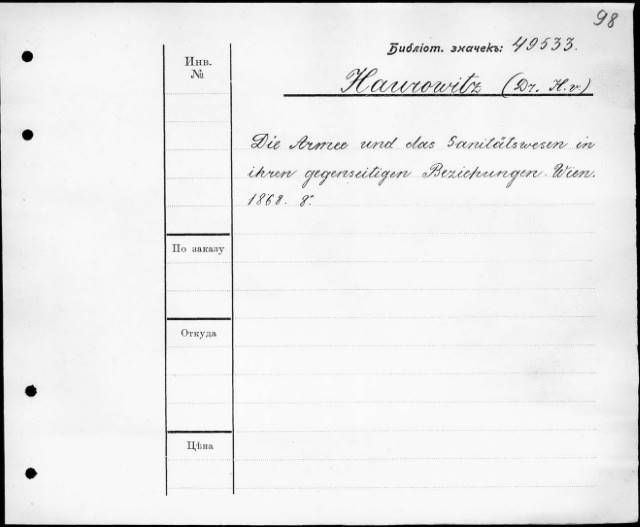 98
Библіот. значекъ: 49533.
Инв.
№
Haurowitz (Dr. H. v)
Die Armee und das Sanitätswesen in
ihren gegenseitigen Beziehungen. Wien.
1868. 8.
По заказу
Откуда
Цѣна